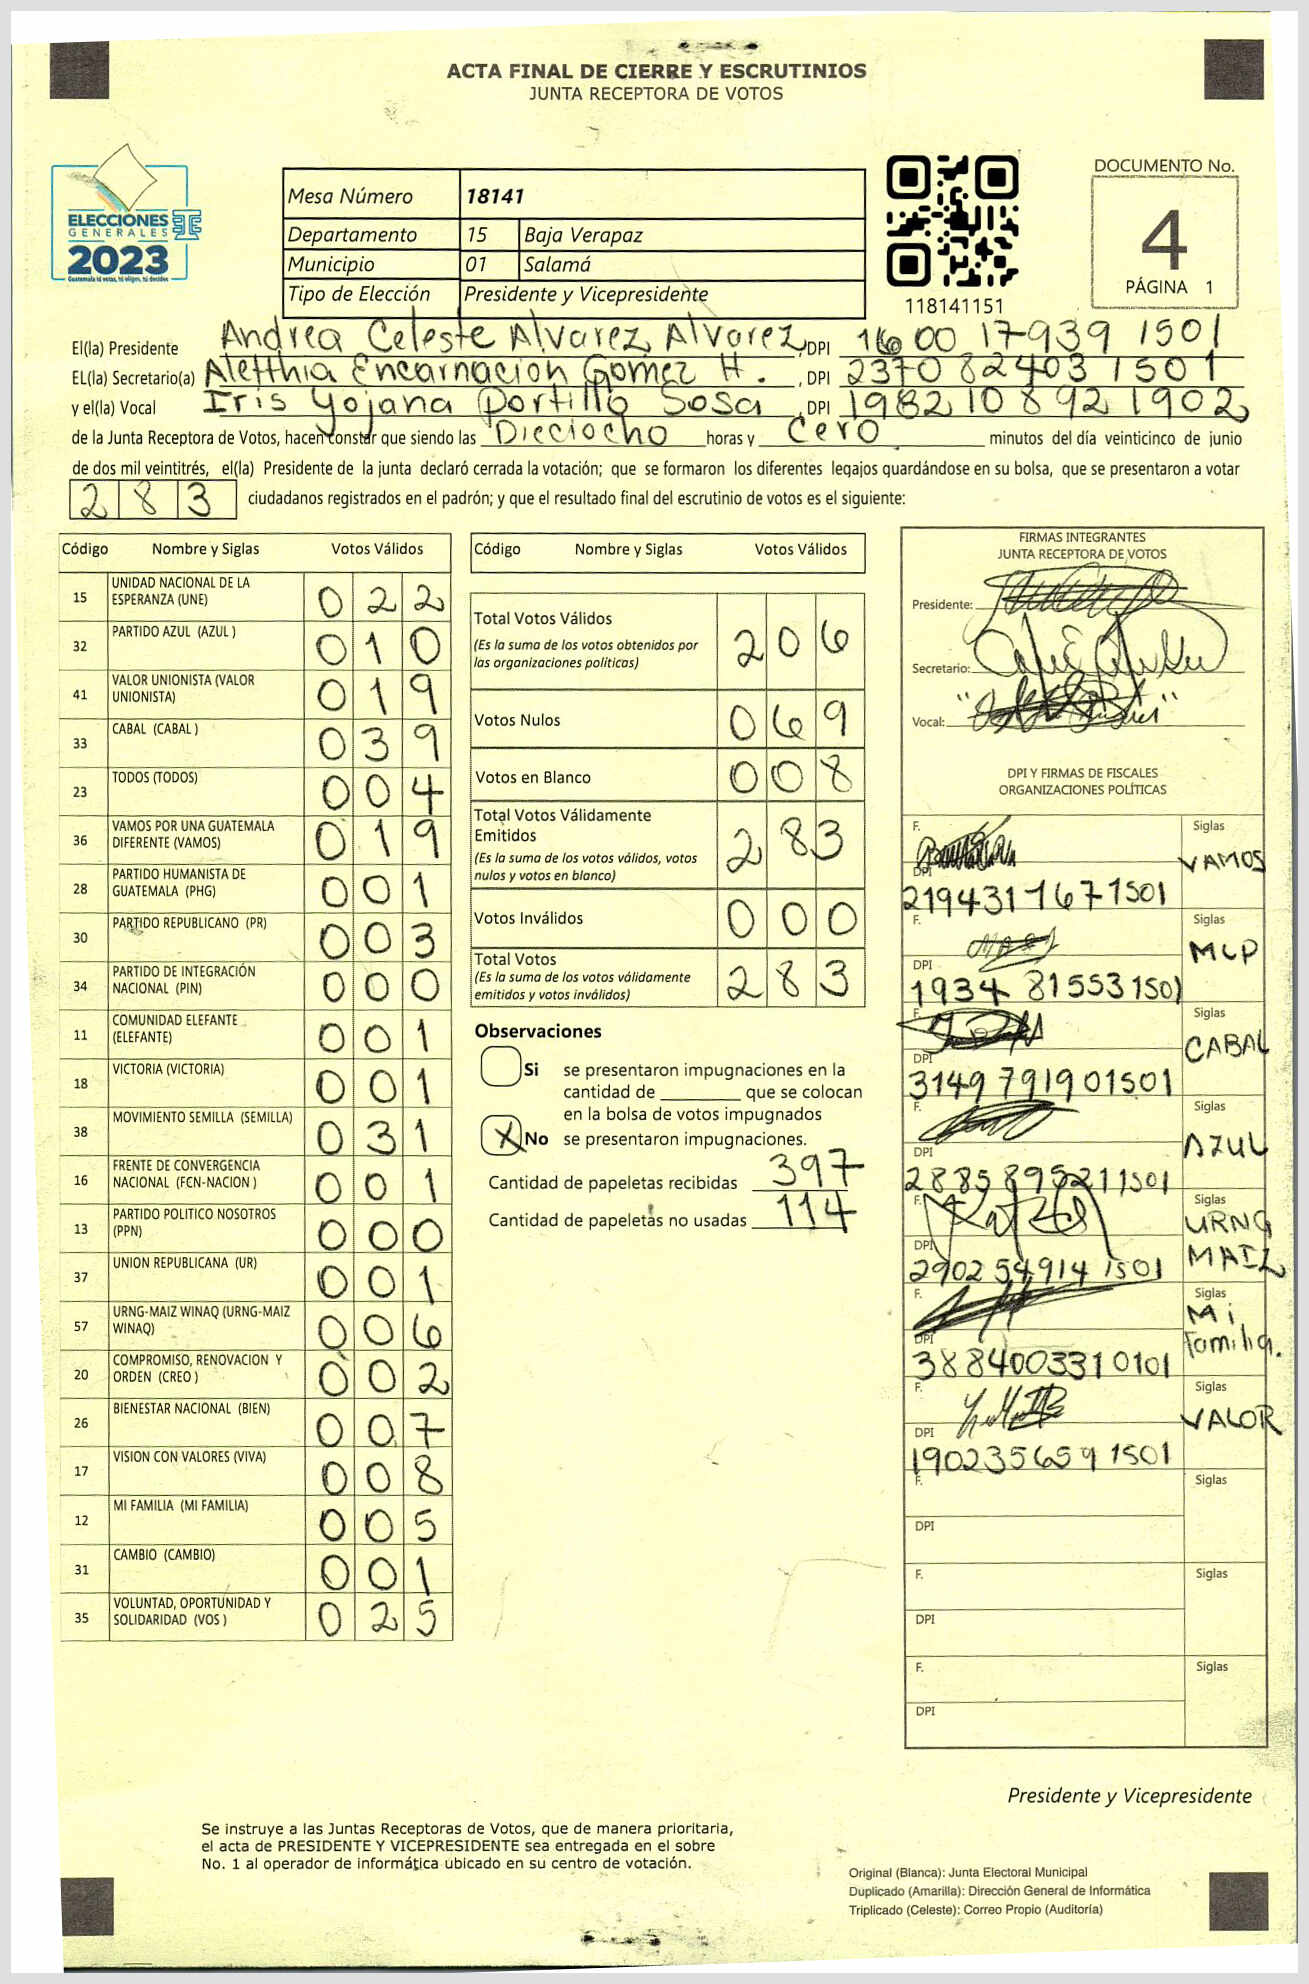 ACTA FINAL DE CIERRE Y ESCRUTINIOS
JUNTA RECEPTORA DE VOTOS
ELECCIONES
GENERALES
2023
Guatemala tú votas, tú eliges, tú decides
Mesa Número 18141
Departamento 15 Baja Verapaz
Municipio 01 Salamá
Tipo de Elección Presidente y Vicepresidente
118141151
DOCUMENTO No.
4
PÁGINA 1
El(la) Presidente Andrea Celeste Alvarez Alvarez, DPI 1600 17939 1501
EL(la) Secretario(a) Aletthia Encarnacion Gomez H. , DPI 2370 82403 1501
y el(la) Vocal Iris Yojana Portillo Sosa , DPI 1982 10892 1902
de la Junta Receptora de Votos, hacen constar que siendo las Dieciocho horas y Cero minutos del día veinticinco de junio
de dos mil veintitrés, el(la) Presidente de la junta declaró cerrada la votación; que se formaron los diferentes legajos guardándose en su bolsa, que se presentaron a votar
283 ciudadanos registrados en el padrón; y que el resultado final del escrutinio de votos es el siguiente:
Código Nombre y Siglas Votos Válidos
15 UNIDAD NACIONAL DE LA ESPERANZA (UNE) 022
32 PARTIDO AZUL (AZUL ) 010
41 VALOR UNIONISTA (VALOR UNIONISTA) 019
33 CABAL (CABAL ) 039
23 TODOS (TODOS) 004
36 VAMOS POR UNA GUATEMALA DIFERENTE (VAMOS) 019
28 PARTIDO HUMANISTA DE GUATEMALA (PHG) 001
30 PARTIDO REPUBLICANO (PR) 003
34 PARTIDO DE INTEGRACIÓN NACIONAL (PIN) 000
11 COMUNIDAD ELEFANTE (ELEFANTE) 001
18 VICTORIA (VICTORIA) 001
38 MOVIMIENTO SEMILLA (SEMILLA) 031
16 FRENTE DE CONVERGENCIA NACIONAL (FCN-NACION ) 001
13 PARTIDO POLITICO NOSOTROS (PPN) 000
37 UNION REPUBLICANA (UR) 001
57 URNG-MAIZ WINAQ (URNG-MAIZ WINAQ) 006
20 COMPROMISO, RENOVACION Y ORDEN (CREO ) 002
26 BIENESTAR NACIONAL (BIEN) 007
17 VISION CON VALORES (VIVA) 008
12 MI FAMILIA (MI FAMILIA) 005
31 CAMBIO (CAMBIO) 001
35 VOLUNTAD, OPORTUNIDAD Y SOLIDARIDAD (VOS ) 025
Código Nombre y Siglas Votos Válidos
Total Votos Válidos 206
(Es la suma de los votos obtenidos por
las organizaciones políticas)
Votos Nulos 069
Votos en Blanco 008
Total Votos Válidamente
Emitidos 283
(Es la suma de los votos válidos, votos
nulos y votos en blanco)
Votos Inválidos 000
Total Votos 283
(Es la suma de los votos válidamente
emitidos y votos inválidos)
Observaciones
Si se presentaron impugnaciones en la
cantidad de ________ que se colocan
en la bolsa de votos impugnados
X No se presentaron impugnaciones.
Cantidad de papeletas recibidas 397
Cantidad de papeletas no usadas 114
FIRMAS INTEGRANTES
JUNTA RECEPTORA DE VOTOS
Presidente:
Secretario:
Vocal:
DPI Y FIRMAS DE FISCALES
ORGANIZACIONES POLÍTICAS
F. Siglas
VAMOS
DPI
2194311671501
F. Siglas
MLP
DPI
1934 81553 1501
F. Siglas
CABAL
DPI
3149791901501
F. Siglas
AZUL
DPI
2885895211501
F. Siglas
URNG
MAIZ
DPI
2902 54914 1501
F. Siglas
Mi
familia.
DPI
3884003310101
F. Siglas
VALOR
DPI
1902356591501
F. Siglas
DPI
F. Siglas
DPI
F. Siglas
DPI
Presidente y Vicepresidente
Se instruye a las Juntas Receptoras de Votos, que de manera prioritaria,
el acta de PRESIDENTE Y VICEPRESIDENTE sea entregada en el sobre
No. 1 al operador de informática ubicado en su centro de votación.
Original (Blanca): Junta Electoral Municipal
Duplicado (Amarilla): Dirección General de Informática
Triplicado (Celeste): Correo Propio (Auditoría)